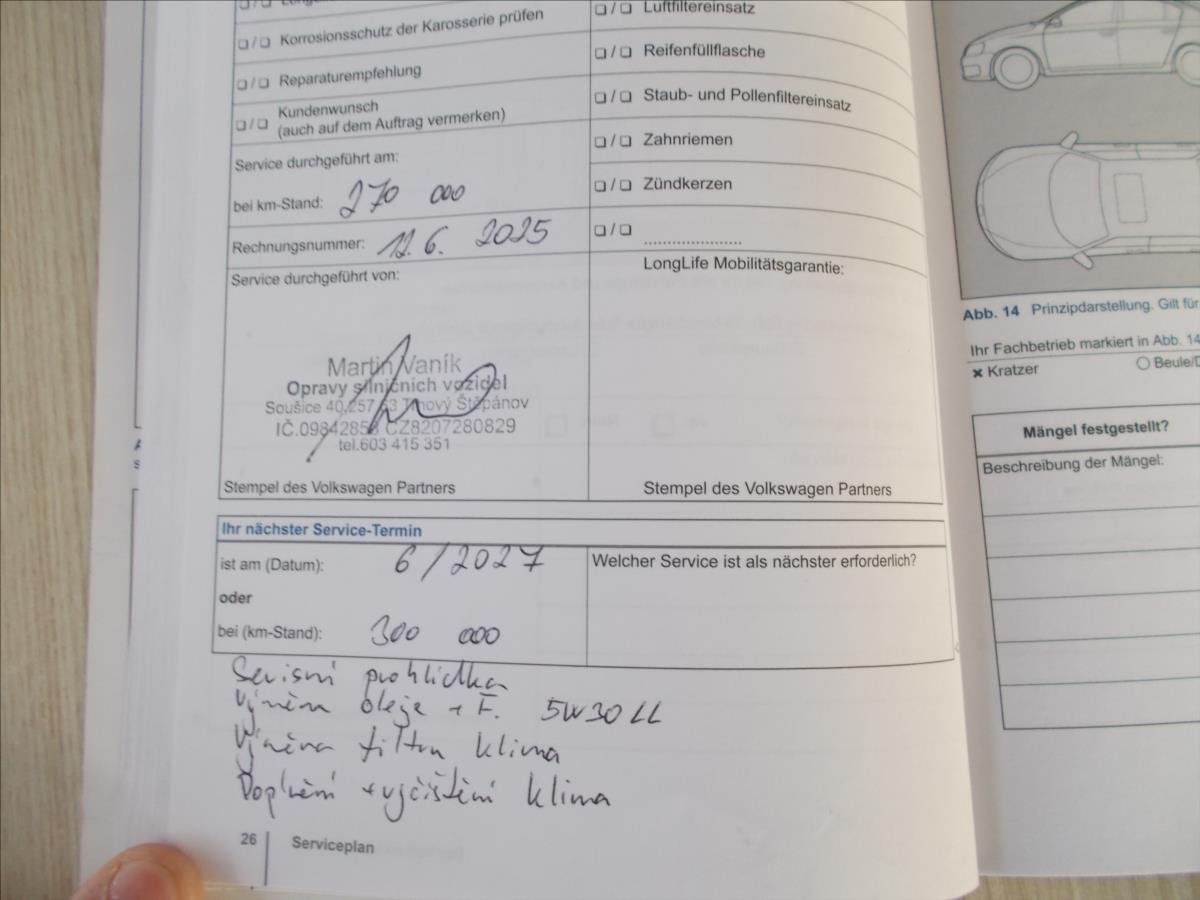 ❏ / ❏ Korrosionsschutz der Karosserie prüfen
❏ / ❏ Reparaturempfehlung
❏ / ❏ Kundenwunsch
(auch auf dem Auftrag vermerken)
Service durchgeführt am:
bei km-Stand: 270 000
Rechnungsnummer: 12.6. 2025
Service durchgeführt von:
Martin Vaník
Opravy silničních vozidel
Soušice 40,257 63 Trhový Štěpánov
IČ.09842853 CZ8207280829
tel.603 415 351
Stempel des Volkswagen Partners
❏ / ❏ Luftfiltereinsatz
❏ / ❏ Reifenfüllflasche
❏ / ❏ Staub- und Pollenfiltereinsatz
❏ / ❏ Zahnriemen
❏ / ❏ Zündkerzen
❏ / ❏ .....................
LongLife Mobilitätsgarantie:
Stempel des Volkswagen Partners
Ihr nächster Service-Termin
ist am (Datum): 6/2027
oder
bei (km-Stand): 300 000
Welcher Service ist als nächster erforderlich?
Servisní prohlídka
Výměna oleje + F. 5W30 LL
Výměna filtru klima
Doplnění + vyčištění klima
26 Serviceplan
Abb. 14 Prinzipdarstellung. Gilt für
Ihr Fachbetrieb markiert in Abb. 14
✖ Kratzer ○ Beule/D
Mängel festgestellt?
Beschreibung der Mängel: